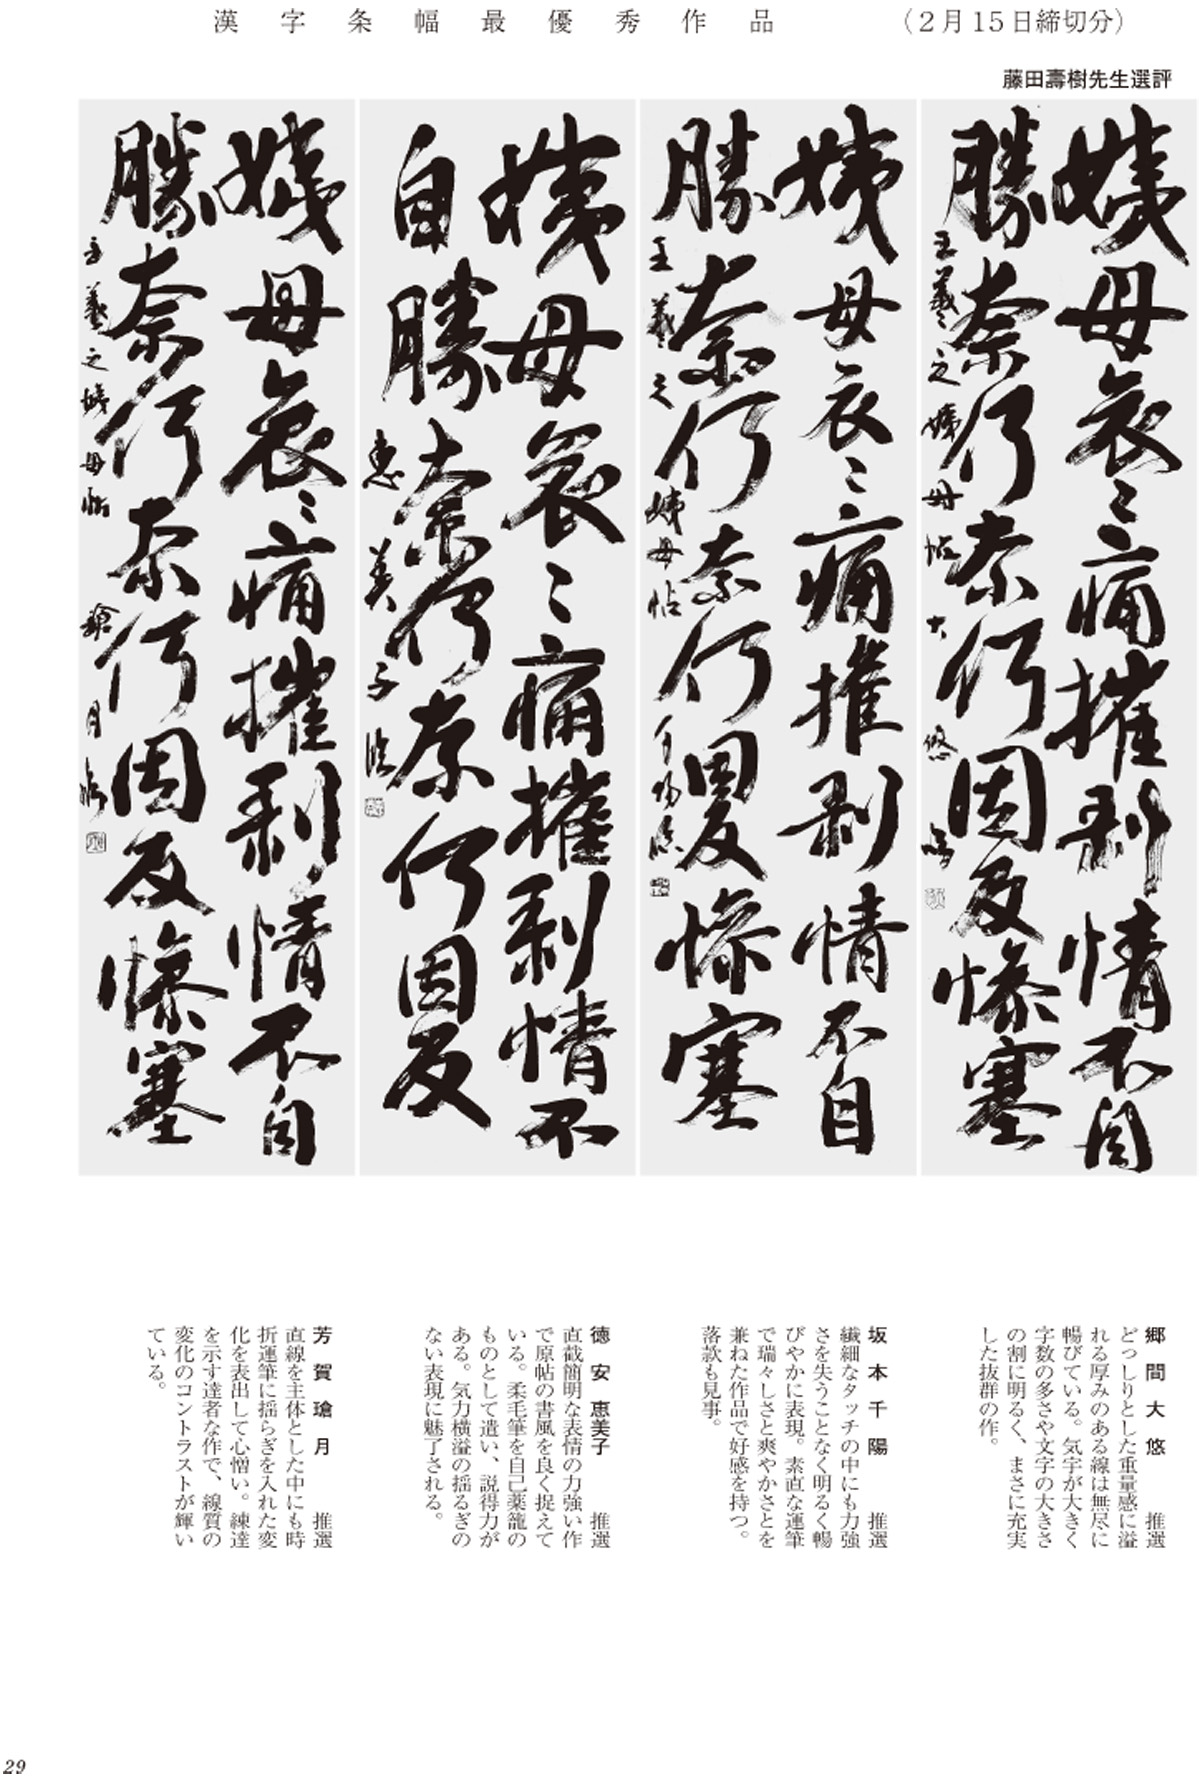 漢字条幅最優秀作品
（2月15日締切分）
藤田壽樹先生選評
姨母哀〻痛摧剥情不自
勝奈何奈何因反惨塞
王羲之姨母帖 大悠臨
姨母哀〻痛摧剥情不自
勝奈何奈何因反惨塞
王羲之姨母帖 千陽臨
姨母哀〻痛摧剥情不
自勝奈何奈何因反
恵美子臨
姨母哀〻痛摧剥情不自
勝奈何奈何因反惨塞
王羲之姨母帖 瑲月臨
郷間大悠 推選
どっしりとした重量感に溢
れる厚みのある線は無尽に
暢びている。気宇が大きく
字数の多さや文字の大きさ
の割に明るく、まさに充実
した抜群の作。
坂本千陽 推選
繊細なタッチの中にも力強
さを失うことなく明るく暢
びやかに表現。素直な運筆
で瑞々しさと爽やかさとを
兼ねた作品で好感を持つ。
落款も見事。
徳安恵美子 推選
直截簡明な表情の力強い作
で原帖の書風を良く捉えて
いる。柔毛筆を自己薬籠の
ものとして遣い、説得力が
ある。気力横溢の揺るぎの
ない表現に魅了される。
芳賀瑲月 推選
直線を主体とした中にも時
折運筆に揺らぎを入れた変
化を表出して心憎い。練達
を示す達者な作で、線質の
変化のコントラストが輝い
ている。
29